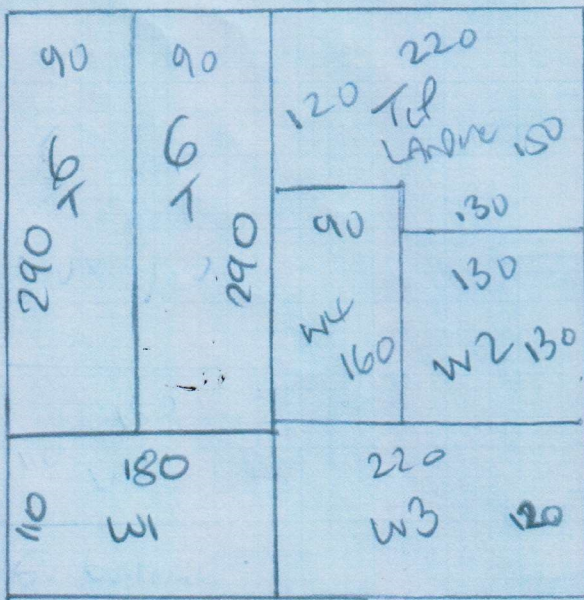 90
T6
290
90
T6
290
220
120
150
130
90
W4
160
130
W2 130
180
110
W1
220
W3 120